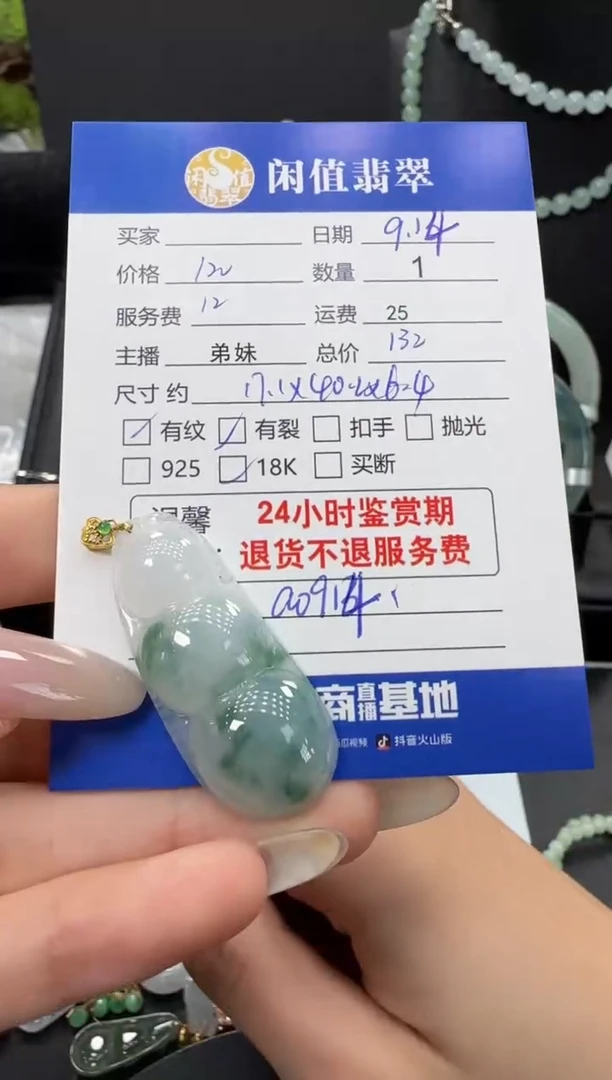 闲值翡翠
闲值翡翠
买家 日期 9.14
价格 120 数量 1
服务费 12 运费 25
主播 弟妹 总价 132
尺寸 约 17.1x40.2x6.4
有纹 有裂 扣手 抛光
925 18K 买断
温馨 24小时鉴赏期
: 退货不退服务费
商直播基地
抖音火山版